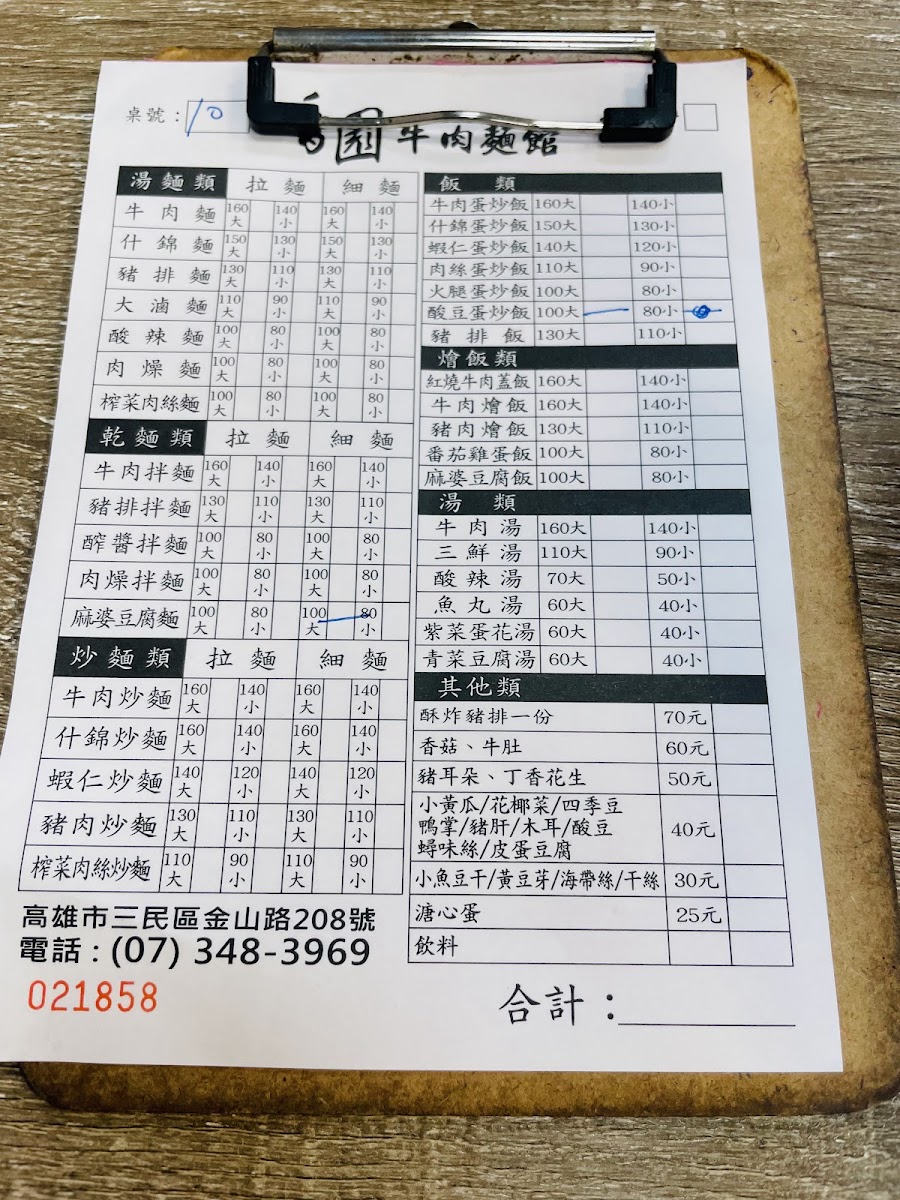 桌號：10
園牛肉麵館
湯麵類 拉麵 細麵
牛肉麵 160大 140小 160大 140小
什錦麵 150大 130小 150大 130小
豬排麵 130大 110小 130大 110小
大滷麵 110大 90小 110大 90小
酸辣麵 100大 80小 100大 80小
肉燥麵 100大 80小 100大 80小
榨菜肉絲麵 100大 80小 100大 80小
乾麵類 拉麵 細麵
牛肉拌麵 160大 140小 160大 140小
豬排拌麵 130大 110小 130大 110小
醡醬拌麵 100大 80小 100大 80小
肉燥拌麵 100大 80小 100大 80小
麻婆豆腐麵 100大 80小 100大 80小
炒麵類 拉麵 細麵
牛肉炒麵 160大 140小 160大 140小
什錦炒麵 160大 140小 160大 140小
蝦仁炒麵 140大 120小 140大 120小
豬肉炒麵 130大 110小 130大 110小
榨菜肉絲炒麵 110大 90小 110大 90小
高雄市三民區金山路208號
電話：(07) 348-3969
021858
飯類
牛肉蛋炒飯 160大 140小
什錦蛋炒飯 150大 130小
蝦仁蛋炒飯 140大 120小
肉絲蛋炒飯 110大 90小
火腿蛋炒飯 100大 80小
酸豆蛋炒飯 100大 80小
豬排飯 130大 110小
燴飯類
紅燒牛肉蓋飯 160大 140小
牛肉燴飯 160大 140小
豬肉燴飯 130大 110小
番茄雞蛋飯 100大 80小
麻婆豆腐飯 100大 80小
湯類
牛肉湯 160大 140小
三鮮湯 110大 90小
酸辣湯 70大 50小
魚丸湯 60大 40小
紫菜蛋花湯 60大 40小
青菜豆腐湯 60大 40小
其他類
酥炸豬排一份 70元
香菇、牛肚 60元
豬耳朵、丁香花生 50元
小黃瓜/花椰菜/四季豆
鴨掌/豬肝/木耳/酸豆 40元
蟳味絲/皮蛋豆腐
小魚豆干/黃豆芽/海帶絲/干絲 30元
溏心蛋 25元
飲料
合計：